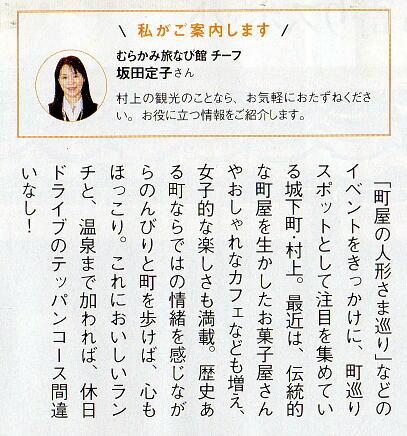 私がご案内します
むらかみ旅なび館 チーフ
坂田定子さん
村上の観光のことなら、お気軽におたずねくださ
い。お役に立つ情報をご紹介します。
「町屋の人形さま巡り」などの
イベントをきっかけに、町巡り
スポットとして注目を集めてい
る城下町・村上。最近は、伝統的
な町屋を生かしたお菓子屋さん
やおしゃれなカフェなども増え、
女子的な楽しさも満載。歴史あ
る町ならではの情緒を感じなが
らのんびりと町を歩けば、心も
ほっこり。これにおいしいラン
チと、温泉まで加われば、休日
ドライブのテッパンコース間違
いなし!